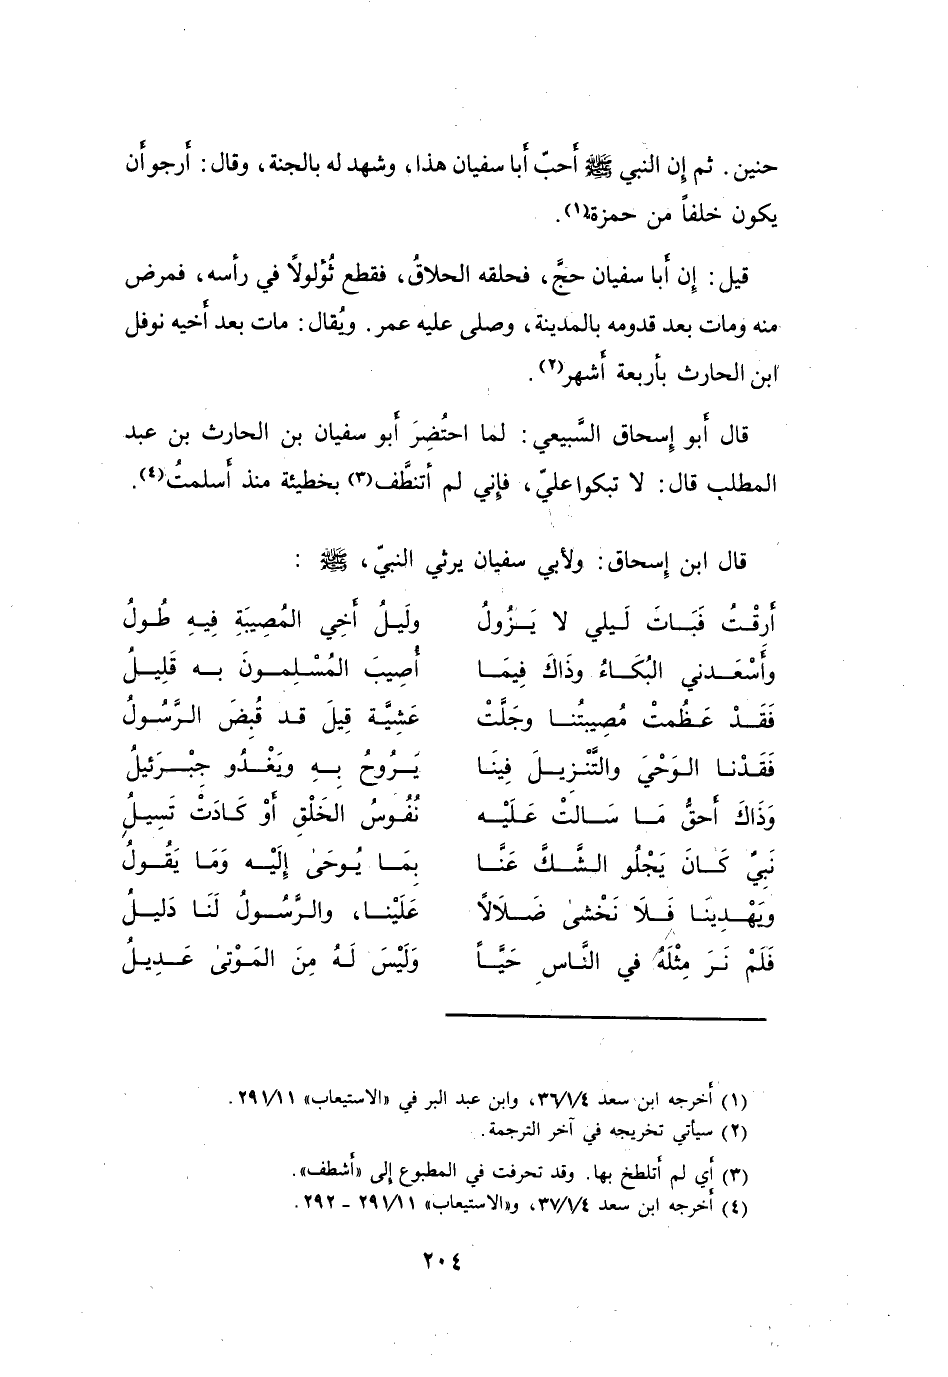 حنين. ثم إن النبي ﷺ أحبّ أبا سفيان هذا، وشهد له بالجنة، وقال: أرجو أن
يكون خلفاً من حمزة(١).
قيل: إن أبا سفيان حجَّ، فحلقه الحلاقُ، فقطع ثُؤلولاً في رأسه، فمرض
منه ومات بعد قدومه بالمدينة، وصلى عليه عمر. ويُقال: مات بعد أخيه نوفل
ابن الحارث بأربعة أشهر(٢).
قال أبو إسحاق السَّبيعي: لما احتُضِرَ أبو سفيان بن الحارث بن عبد
المطلب قال: لا تبكوا عليّ، فإني لم أتنطَّف(٣) بخطيئة منذ أسلمتُ(٤).
قال ابن إسحاق: ولأبي سفيان يرثي النبيّ، ﷺ :
أَرِقْتُ فَبَاتَ لَيلي لا يَزُولُ ولَيلُ أخِي المُصِيبَةِ فيهِ طُولُ
وأَسْعَدني البُكَاءُ وذَاكَ فِيمَا أُصِيبَ المُسْلِمونَ بهِ قَلِيلُ
فَقَدْ عَظُمتْ مُصِيبتُنا وجَلَّتْ عَشِيَّة قِيلَ قد قُبِضَ الرَّسُولُ
فَقَدْنا الوَحْيَ والتَّنْزِيلَ فِينَا يَرُوحُ بِهِ ويَغْدُو جِبْرَئيلُ
وَذَاكَ أحقُّ مَا سَالتْ عَلَيْهِ نُفُوسُ الخَلْقِ أوْ كَادَتْ تَسِيلُ
نَبيٌّ كَانَ يَجْلُو الشَّكَّ عَنَّا بِمَا يُوحَىٰ إلَيْهِ وَمَا يَقُولُ
ويَهْدِينَا فَلَا نَخْشىٰ ضَلَالاً عَلَيْنا، والرَّسُولُ لَنَا دَليلُ
فَلَمْ نَرَ مِثْلَهُ في النَّاسِ حَيَّاً وَلَيْسَ لَهُ مِنَ المَوْتىٰ عَدِيلُ
(١) أخرجه ابن سعد ٣٦/١/٤، وابن عبد البر في «الاستيعاب» ٢٩١/١١.
(٢) سيأتي تخريجه في آخر الترجمة.
(٣) أي لم أتلطخ بها. وقد تحرفت في المطبوع إلى «أشطف».
(٤) أخرجه ابن سعد ٣٧/١/٤، و«الاستيعاب» ٢٩١/١١ - ٢٩٢.
٢٠٤